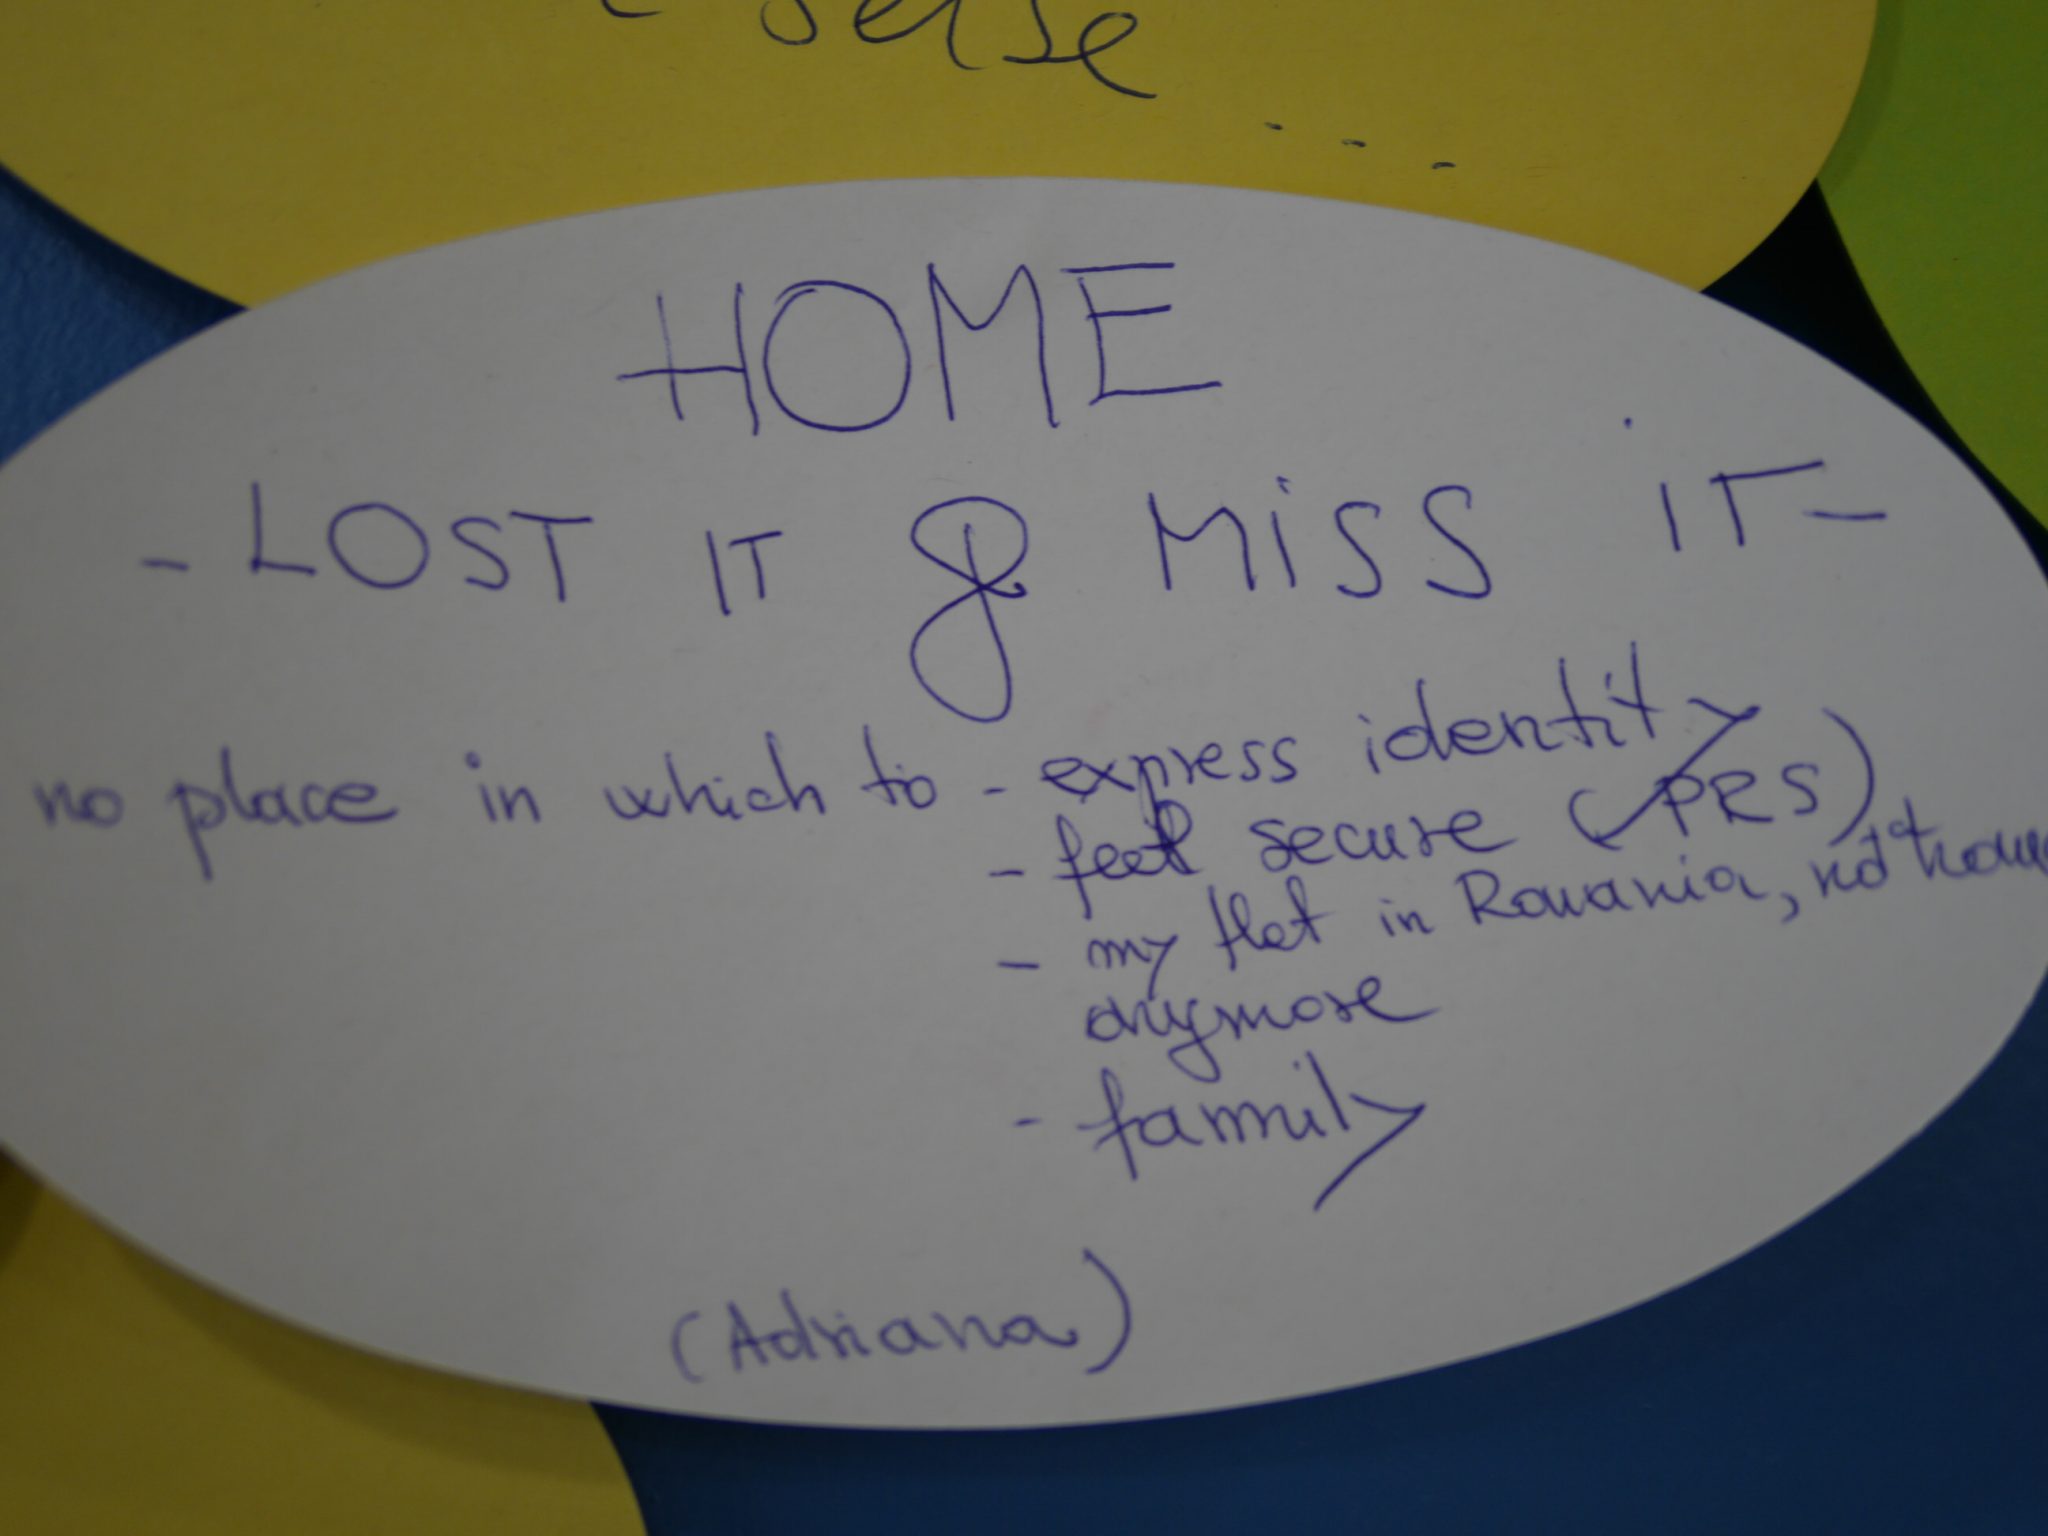 sense
...
HOME
- LOST IT & MISS IT -
no place in which to - express identity
- feel secure (PRS)
- my flat in Romania, not home
anymore
- family
(Adriana)